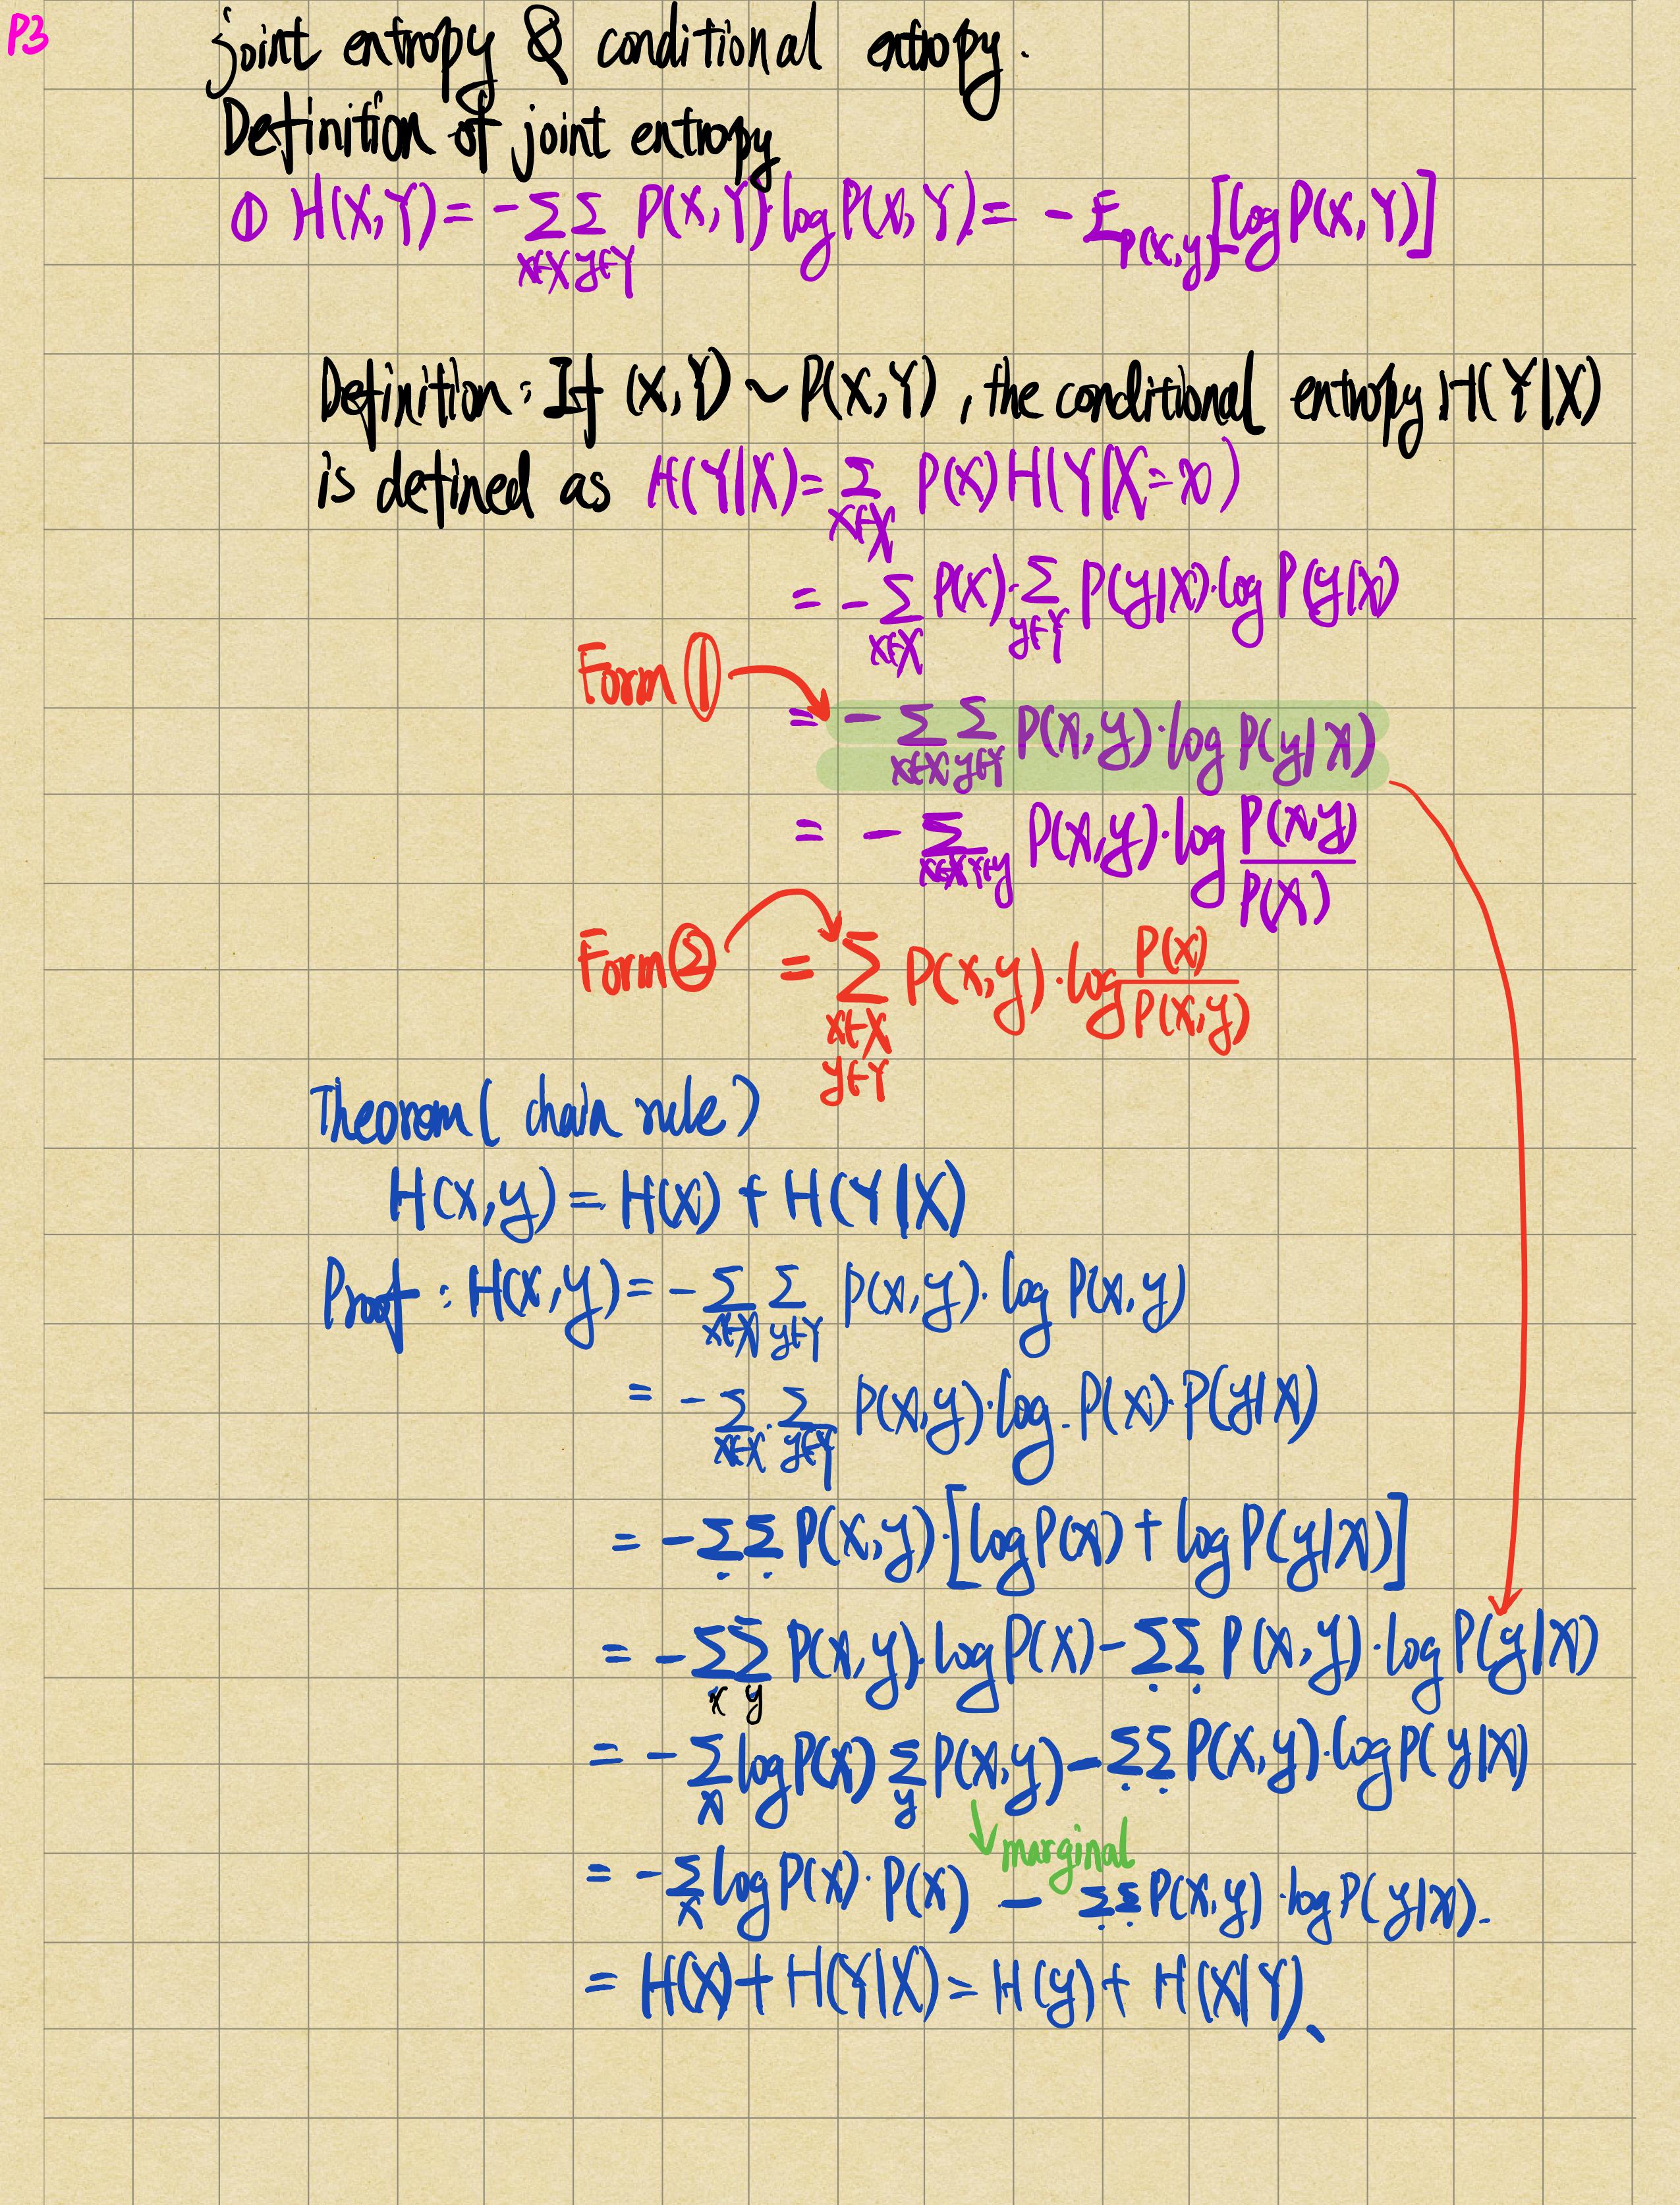 P3
joint entropy & conditional entropy.
Definition of joint entropy
① H(X,Y) = -∑∑ P(X,Y)·log P(X,Y) = -E_P(x,y) [log P(X,Y)]
x∈X y∈Y
Definition: If (X,Y) ~ P(X,Y), the conditional entropy H(Y|X)
is defined as H(Y|X) = ∑ P(x) H(Y|X=x)
x∈X
= -∑ P(x)·∑ P(y|x)·log P(y|x)
x∈X y∈Y
Form ①
= -∑∑ P(x,y)·log P(y|x)
x∈X y∈Y
= -∑ P(x,y)·log P(x,y)/P(x)
x∈X Y∈y
Form ② = ∑ P(x,y)·log P(x)/P(x,y)
x∈X
y∈Y
Theorom (chain rule)
H(x,y) = H(x) + H(Y|X)
Proof: H(x,y) = -∑ ∑ P(x,y)·log P(x,y)
x∈X y∈Y
= -∑ ∑ P(x,y)·log P(x)·P(y|x)
x∈X y∈Y
= -∑∑ P(x,y)·[log P(x) + log P(y|x)]
= -∑∑ P(x,y)·log P(x) - ∑∑ P(x,y)·log P(y|x)
x y
= -∑ log P(x) ∑ P(x,y) - ∑∑ P(x,y)·log P(y|x)
x y
marginal
= -∑ log P(x)·P(x) - ∑∑ P(x,y)·log P(y|x).
x
= H(X) + H(Y|X) = H(y) + H(X|Y)